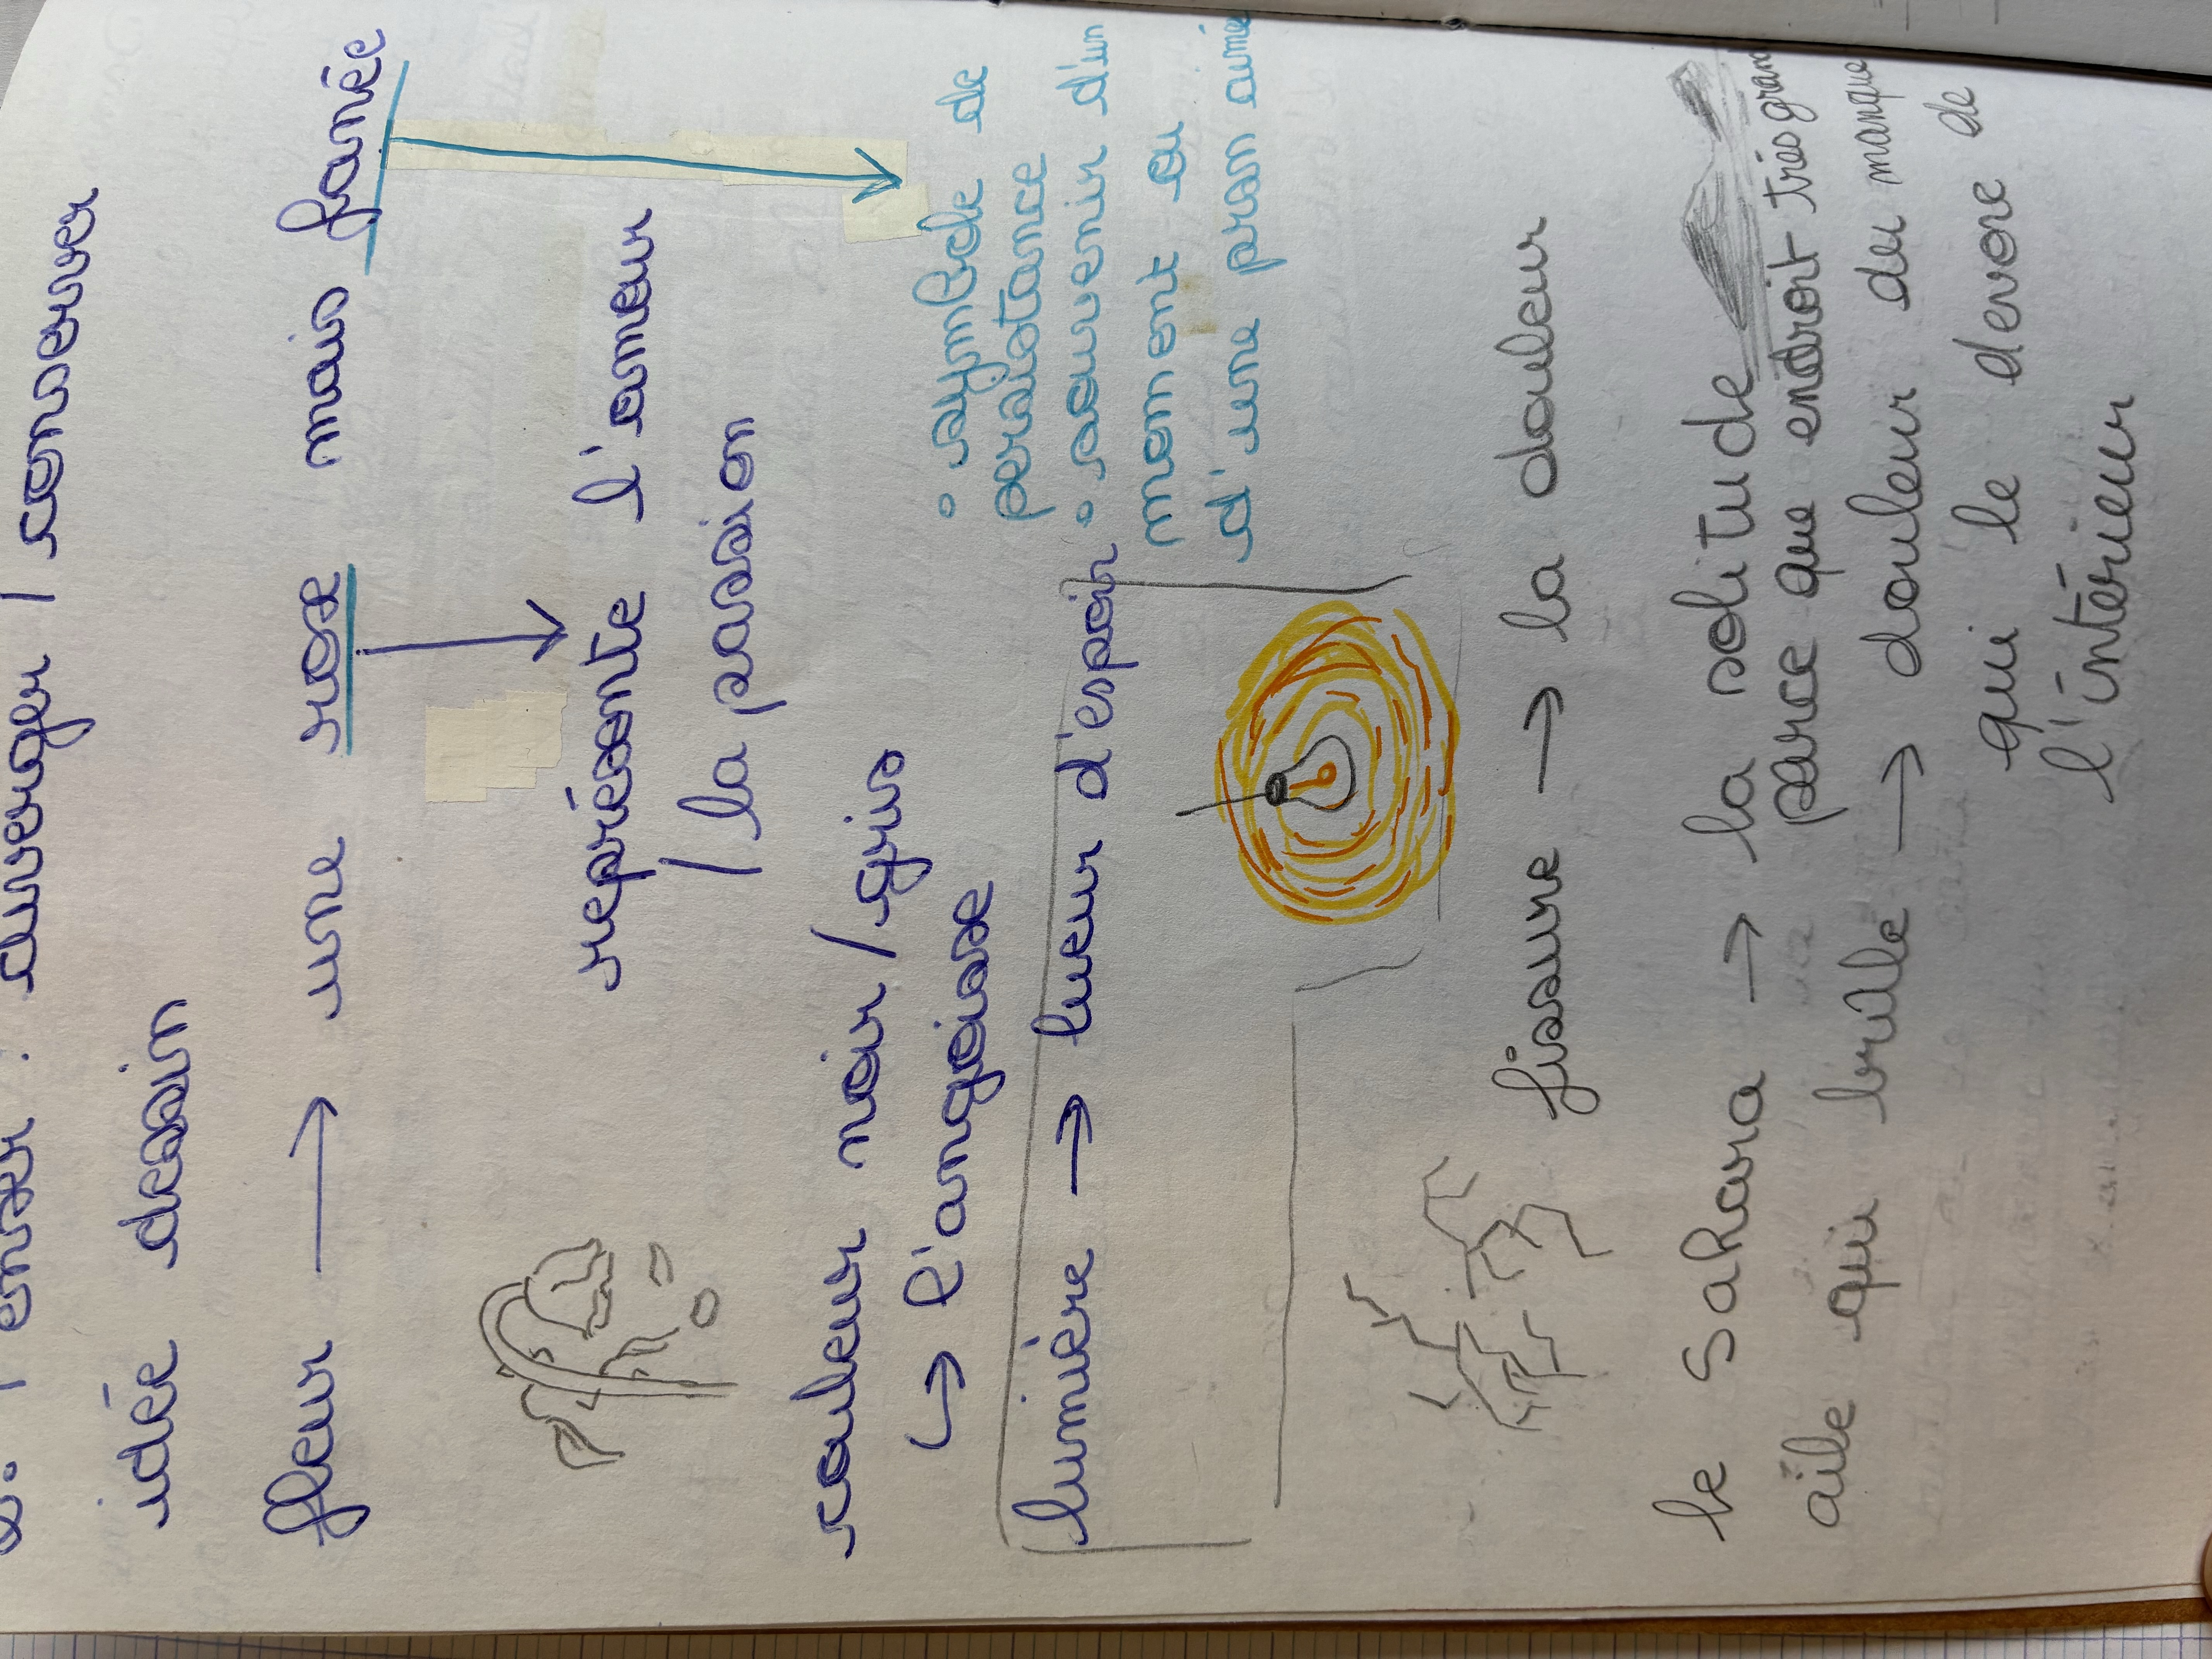 penser : diverger / conserver
idée dessin
fleur → une rose mais fanée
représente l'amour
/ la passion
couleur noir / gris
↳ l'angoisse
° symbole de
persistance
° souvenir d'un
moment ou
d'une prsn aimé
lumière → lueur d'espoir
fissure → la douleur
le Sahara → la solitude
parce que endroit très gran
aile qui brûle → douleur du manque
qui le devore de
l'intérieur